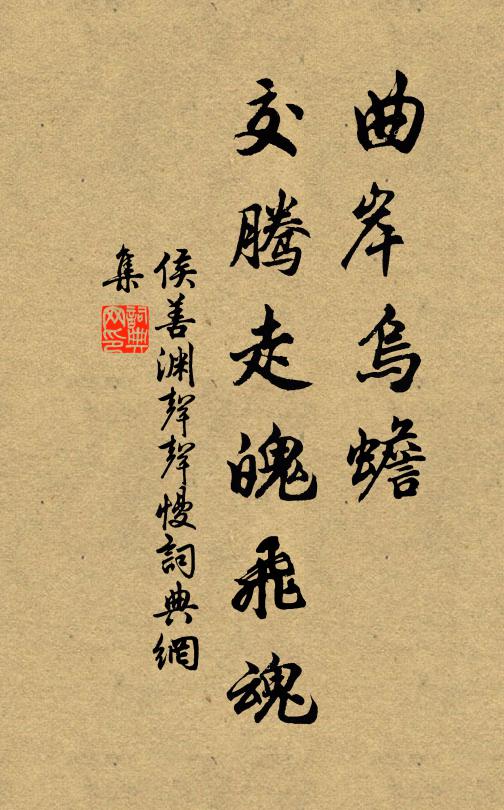 曲岸烏蟾
交騰走魄飛魂
侯善渊聲聲慢詞典網
集
詞典网印